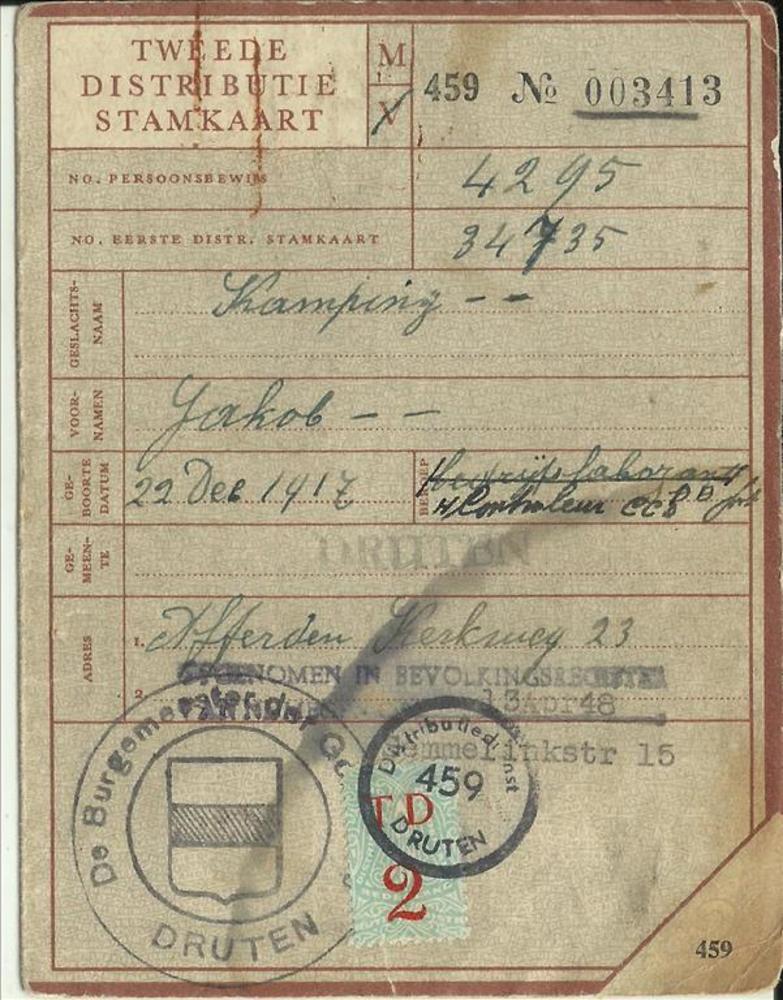 TWEEDE
DISTRIBUTIE
STAMKAART
M
V
459 № 003413
NO. PERSOONSBEWIJS
4295
NO. EERSTE DISTR. STAMKAART
34735
GESLACHTS-
NAAM
Kamping - -
VOOR-
NAMEN
Jakob - -
GE-
BOORTE
DATUM
22 Dec 1917
BEROEP
bedrijfslaborant
Controleur CCD
GE-
MEEN-
TE
DRUTEN
ADRES
1. Afferden Kerkweg 23
OPGENOMEN IN BEVOLKINGSREGISTER
2.
13Apr48
emmelinkstr 15
De Burgemeester der
DRUTEN
Distributiedienst
459
DRUTEN
TD
2
459